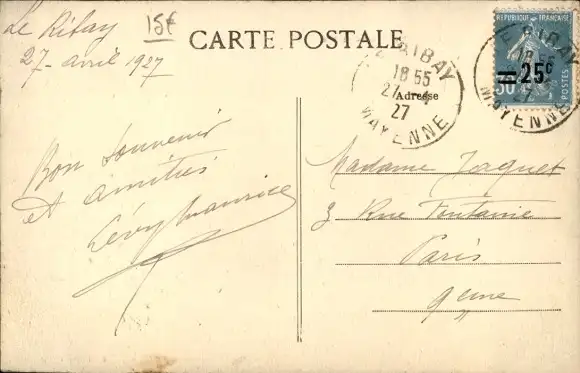 Le Ribay
27 - avril 1927
15€
CARTE POSTALE
Adresse
LE RIBAY
18 55
27 - 4
27
MAYENNE
REPUBLIQUE FRANÇAISE
POSTES
30
= 25c
LE RIBAY
18 55
27
MAYENNE
Bon souvenir
et amitiés
Lévy Maurice
Madame Jaquet
3 Rue Fontaine
Paris
9eme